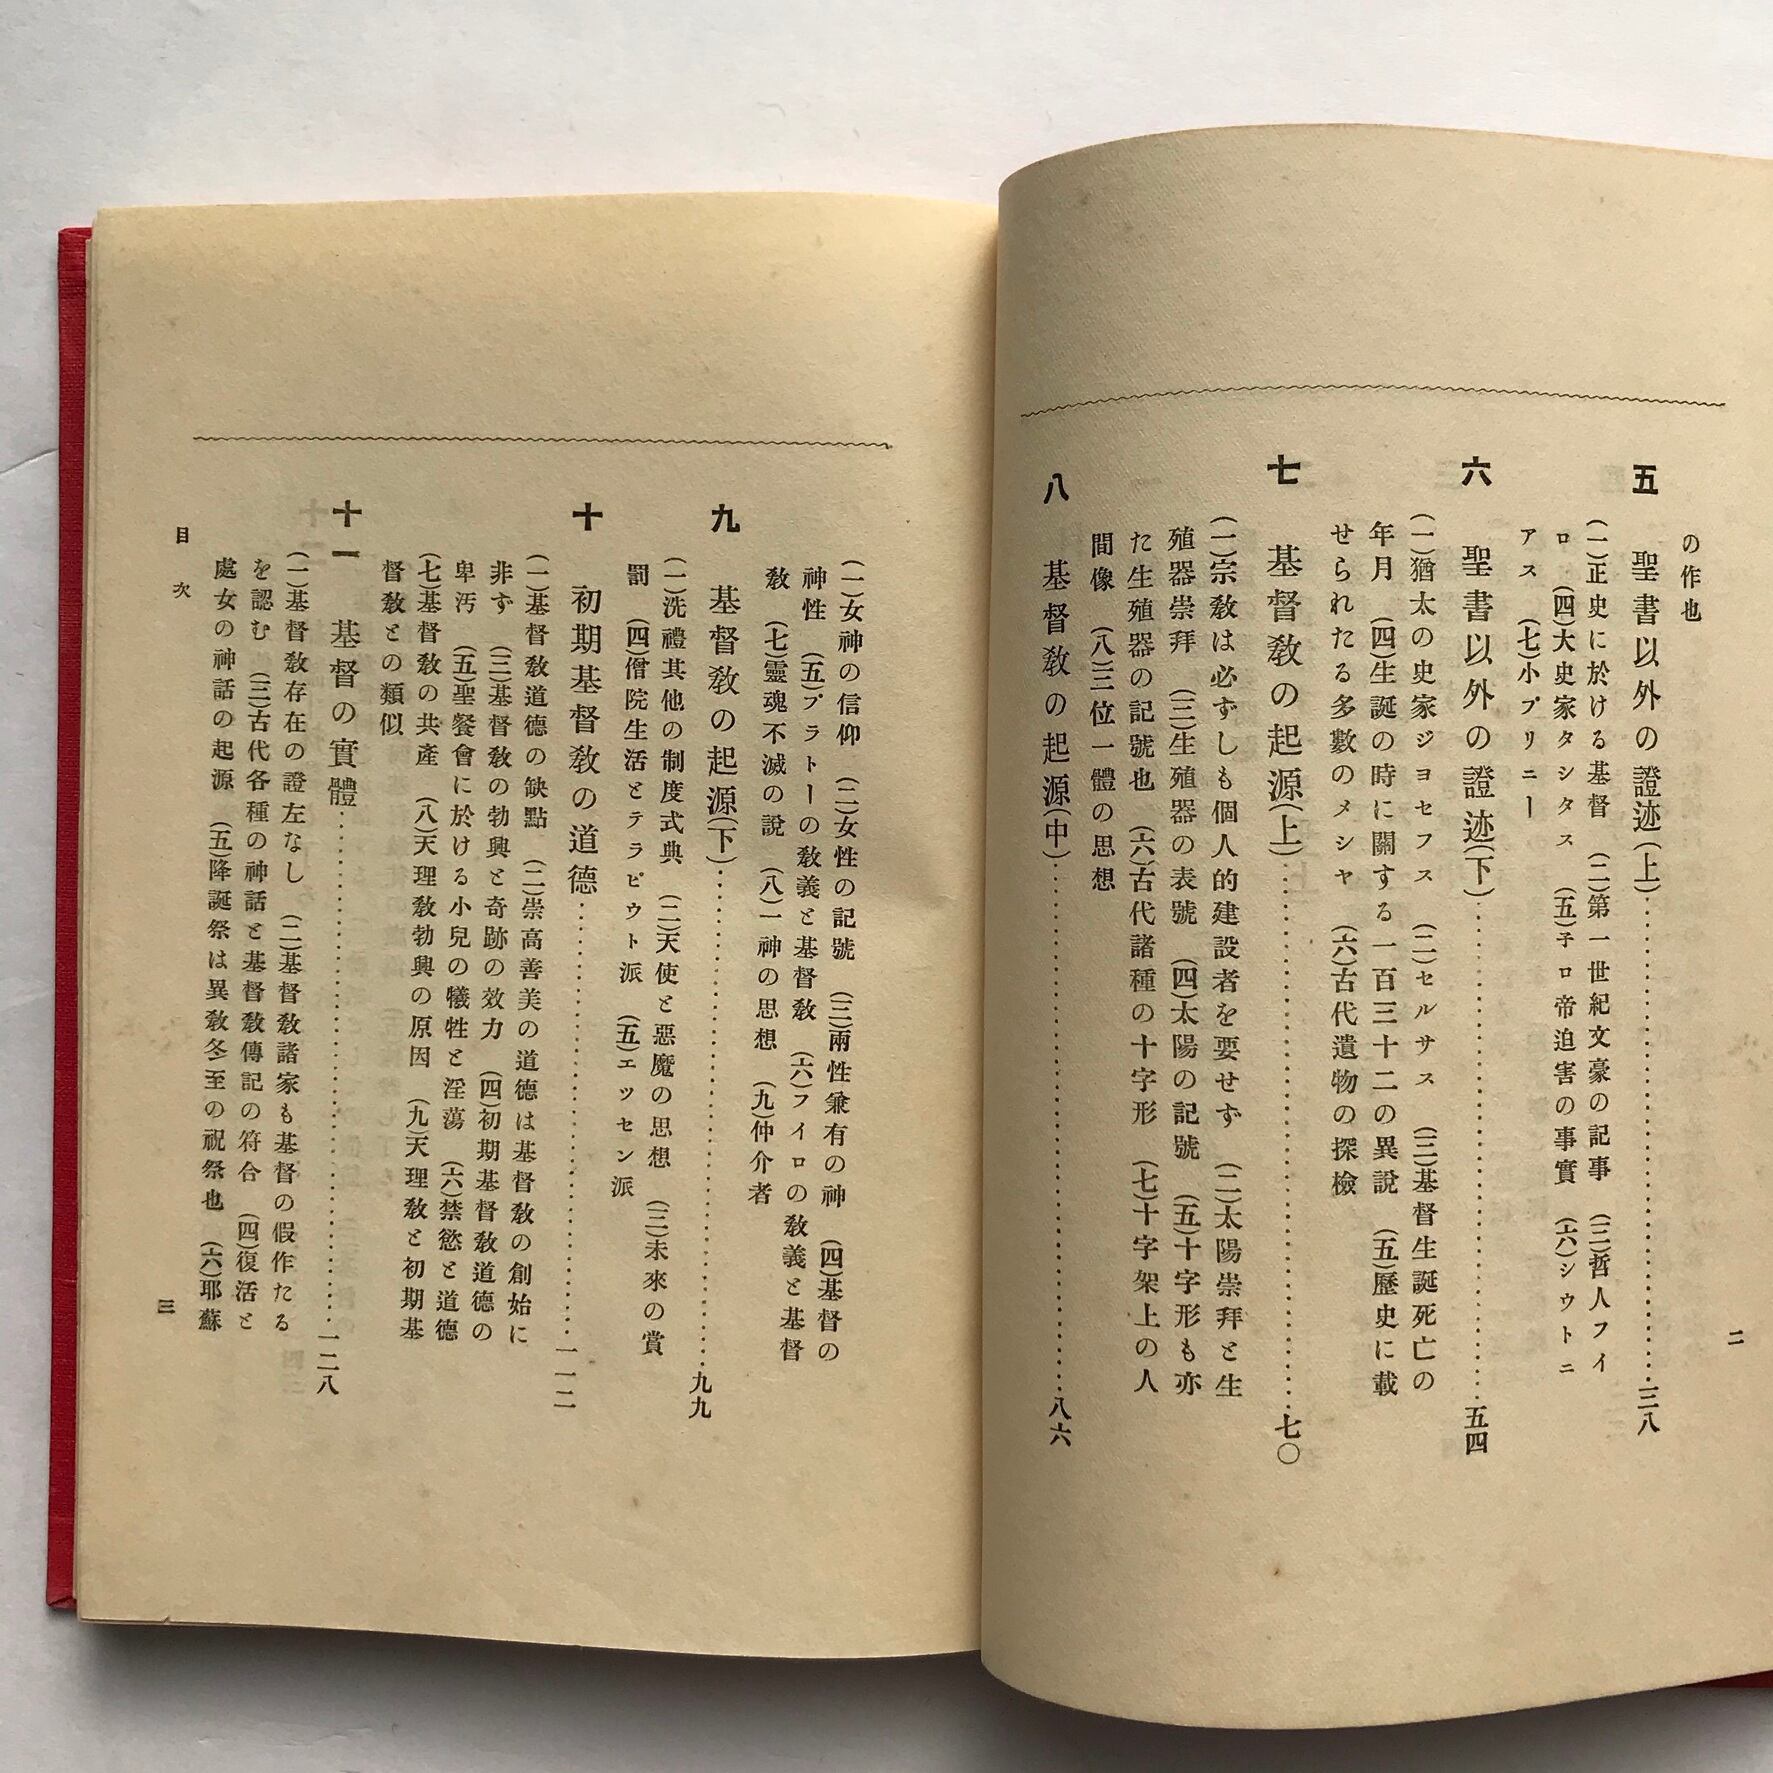 の作也
五　聖書以外の證迹(上)……三八
(一)正史に於ける基督　(二)第一世紀文豪の記事　(三)哲人フイ
ロ　(四)大史家タシタス　(五)子ロ帝迫害の事實　(六)シウトニ
アス　(七)小プリニー
六　聖書以外の證迹(下)……五四
(一)猶太の史家ジヨセフス　(二)セルサス　(三)基督生誕死亡の
年月　(四)生誕の時に關する一百三十二の異說　(五)歷史に載
せられたる多數のメシヤ　(六)古代遺物の探檢
七　基督敎の起源(上)……七〇
(一)宗敎は必ずしも個人的建設者を要せず　(二)太陽崇拜と生
殖器崇拜　(三)生殖器の表號　(四)太陽の記號　(五)十字形も亦
た生殖器の記號也　(六)古代諸種の十字形　(七)十字架上の人
間像　(八)三位一體の思想
八　基督敎の起源(中)……八六
二
(一)女神の信仰　(二)女性の記號　(三)兩性兼有の神　(四)基督の
神性　(五)プラトーの敎義と基督敎　(六)フイロの敎義と基督
敎　(七)靈魂不滅の說　(八)一神の思想　(九)仲介者
九　基督敎の起源(下)……九九
(一)洗禮其他の制度式典　(二)天使と惡魔の思想　(三)未來の賞
罰　(四)僧院生活とテラピウト派　(五)エッセン派
十　初期基督敎の道德……一一二
(一)基督敎道德の缺點　(二)崇高善美の道德は基督敎の創始に
非ず　(三)基督敎の勃興と奇跡の效力　(四)初期基督敎道德の
卑汚　(五)聖餐會に於ける小兒の犧牲と淫蕩　(六)禁慾と道德
(七)基督敎の共產　(八)天理敎勃興の原因　(九)天理敎と初期基
督敎との類似
十一　基督の實體……一二八
(一)基督敎存在の證左なし　(二)基督敎諸家も基督の假作たる
を認む　(三)古代各種の神話と基督敎傳記の符合　(四)復活と
處女の神話の起源　(五)降誕祭は異敎冬至の祝祭也　(六)耶蘇
目次　三